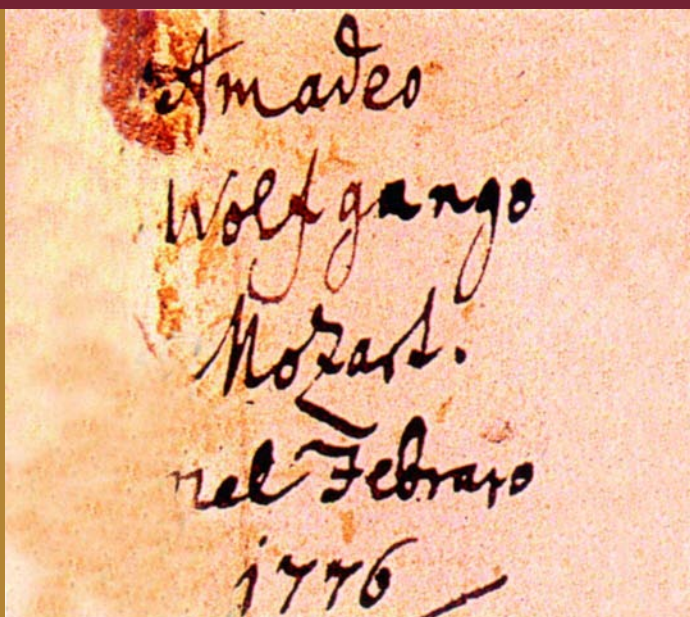 Amadeo
Wolfgango
Mozart.
nel Febraro
1776